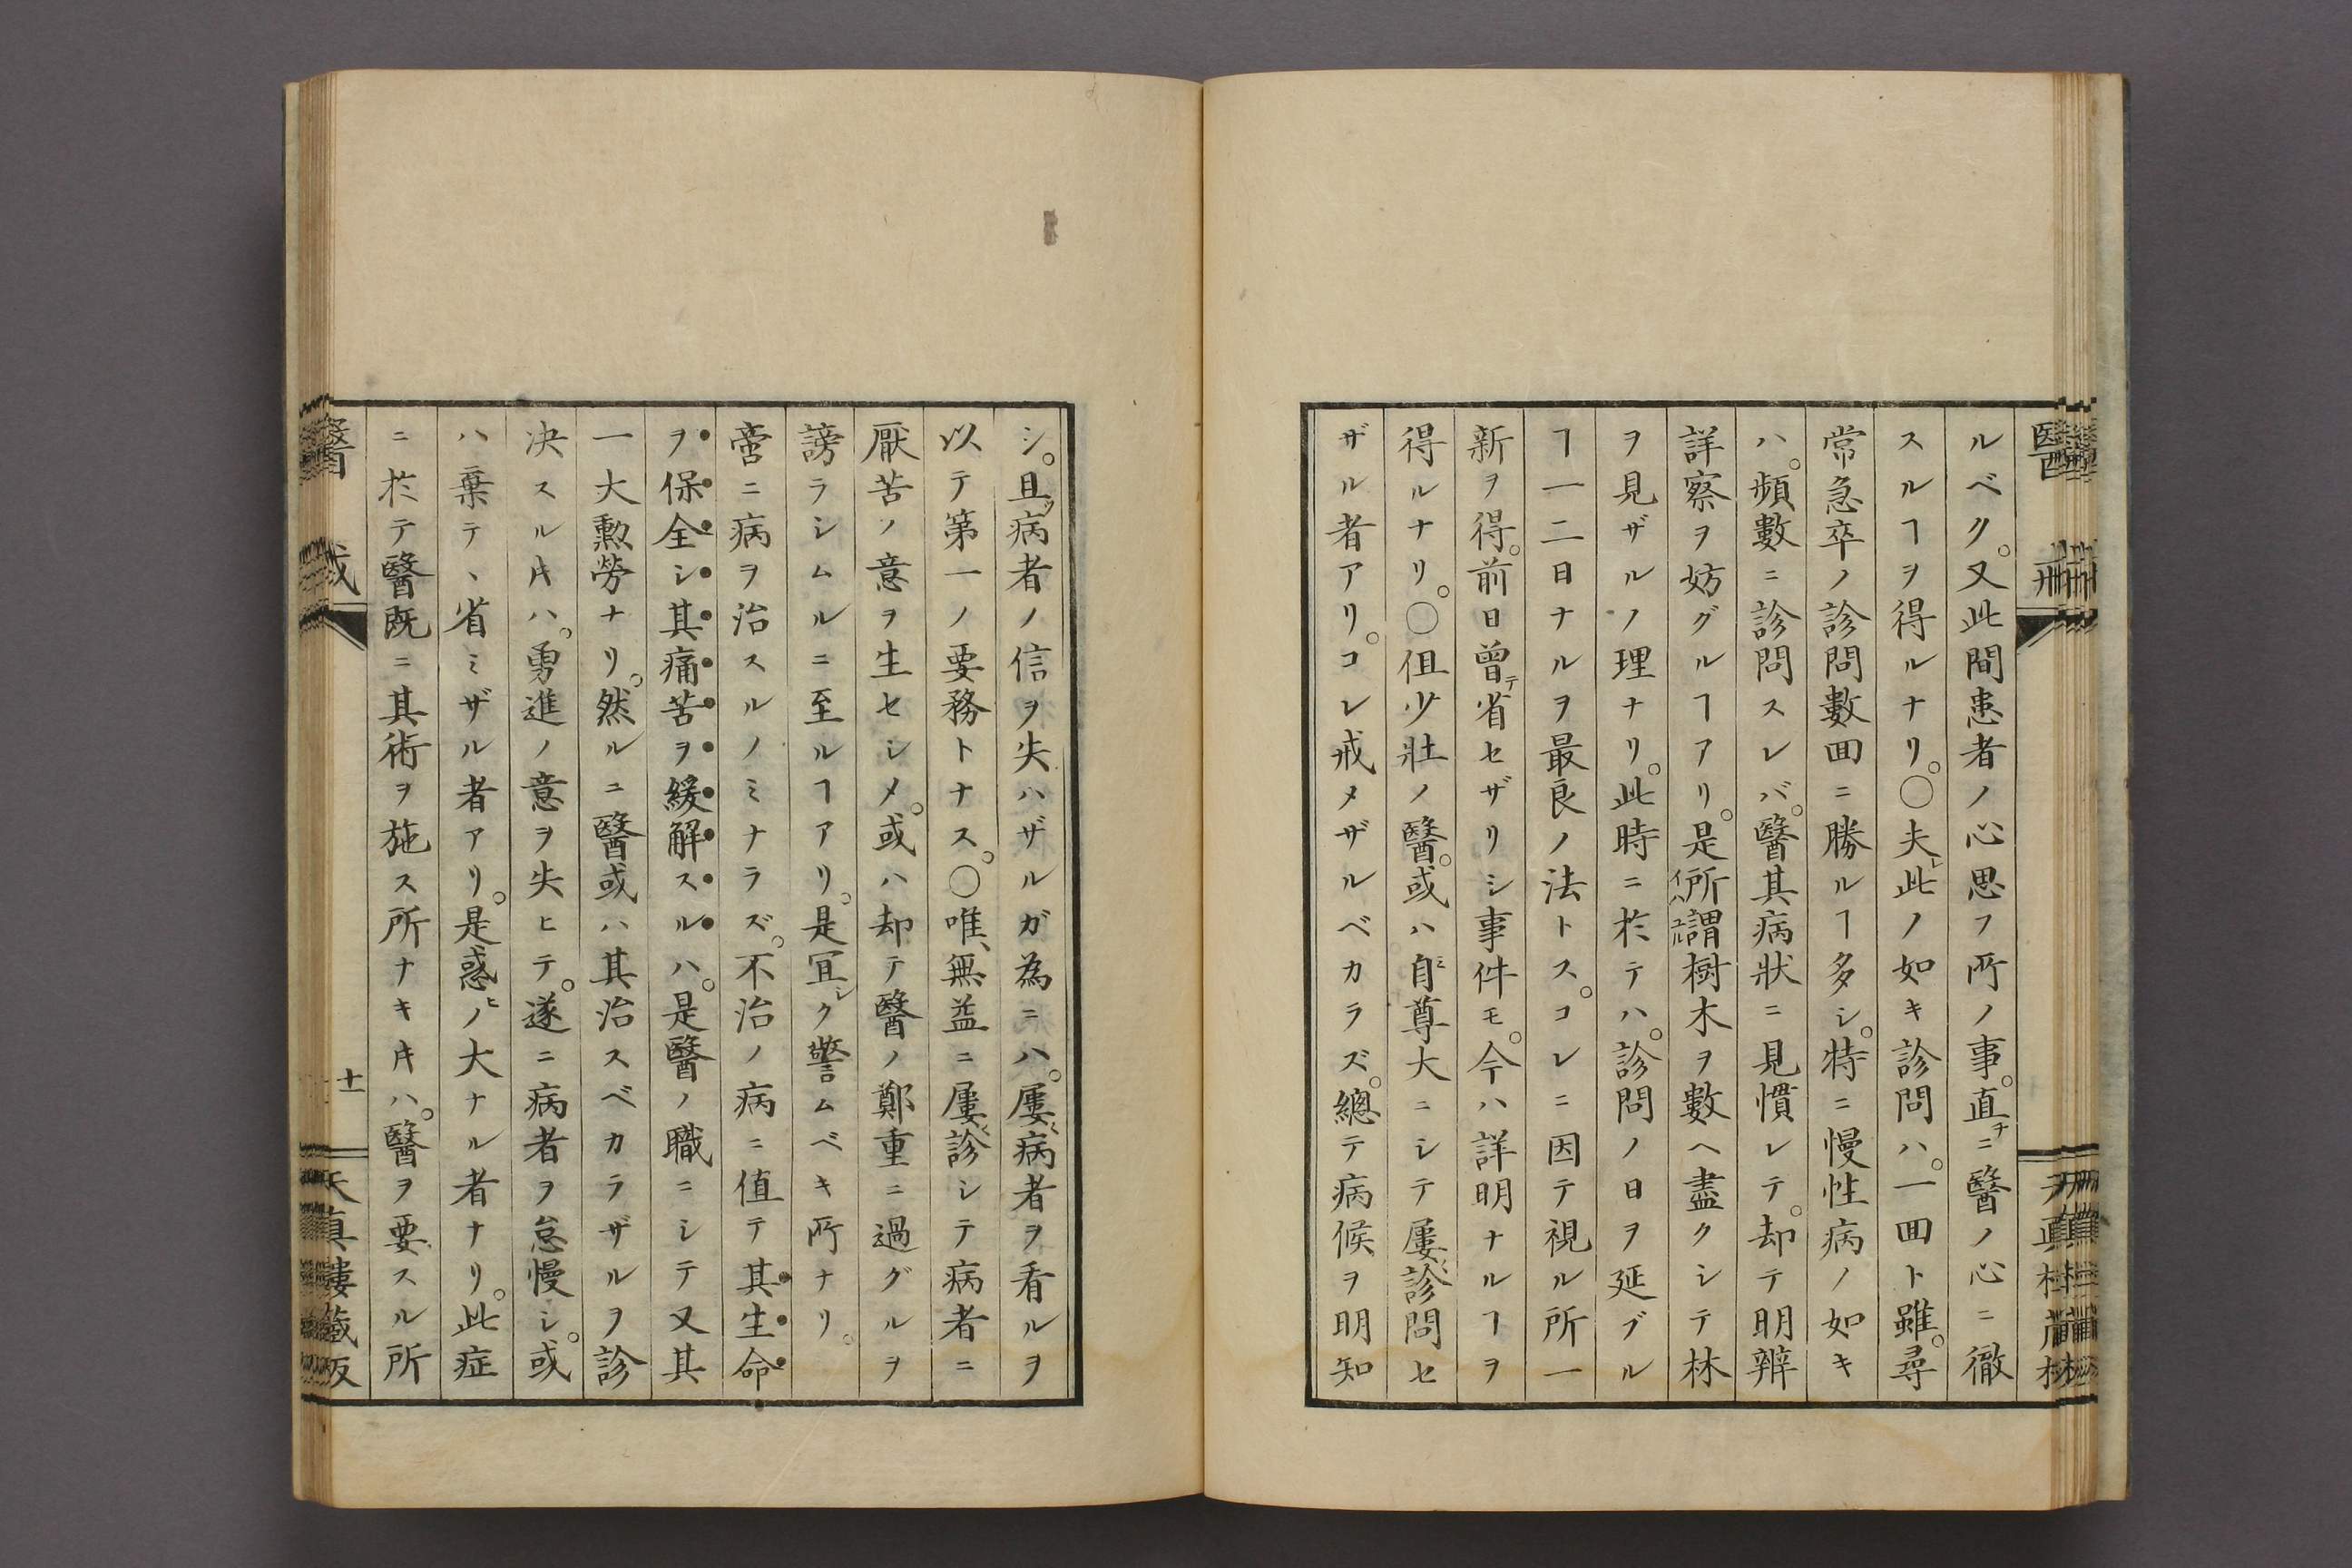 ルベク。又此間患者ノ心思フ所ノ事。直チニ醫ノ心ニ徹
スルヿヲ得ルナリ。○夫レ此ノ如キ診問ハ。一回ト雖。尋
常急卒ノ診問數回ニ勝ルヿ多シ。特ニ慢性病ノ如キ
ハ。頻數ニ診問スレバ。醫其病狀ニ見慣レテ。却テ明辨
詳察ヲ妨グルヿアリ。是所謂樹木ヲ數ヘ盡クシテ林
ヲ見ザルノ理ナリ。此時ニ於テハ。診問ノ日ヲ延ブル
ヿ一二日ナルヲ最良ノ法トス。コレニ因テ視ル所一
新ヲ得。前日曾テ省セザリシ事件モ。今ハ詳明ナルヿヲ
得ルナリ。○但少壯ノ醫。或ハ自ラ尊大ニシテ屢〻診問セ
ザル者アリ。コレ戒メザルベカラズ。總テ病候ヲ明知
シ。且ツ病者ノ信ヲ失ハザルガ為ニハ。屢〻病者ヲ看ルヲ
以テ第一ノ要務トナス。○唯、無益ニ屢〻診シテ病者ニ
厭苦ノ意ヲ生セシメ。或ハ却テ醫ノ鄭重ニ過グルヲ
謗ラシムルニ至ルヿアリ。是冝シク警ムベキ所ナリ。
啻ニ病ヲ治スルノミナラズ。不治ノ病ニ値テ其生命
ヲ保全シ其痛苦ヲ緩解スルハ。是醫ノ職ニシテ又其
一大勲勞ナリ。然ルニ醫或ハ其治スベカラザルヲ診
决スル𪜈ハ。勇進ノ意ヲ失ヒテ。遂ニ病者ヲ怠慢シ。或
ハ棄テヽ省ミザル者アリ。是惑ヒノ大ナル者ナリ。此症
ニ於テ醫既ニ其術ヲ施ス所ナキ𪜈ハ。醫ヲ要スル所
醫戒
十
天真樓藏版